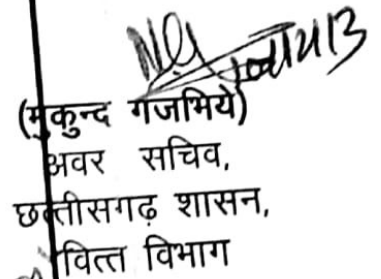 (मुकुन्द गजभिये)
अवर सचिव,
छत्तीसगढ़ शासन,
वित्त विभाग